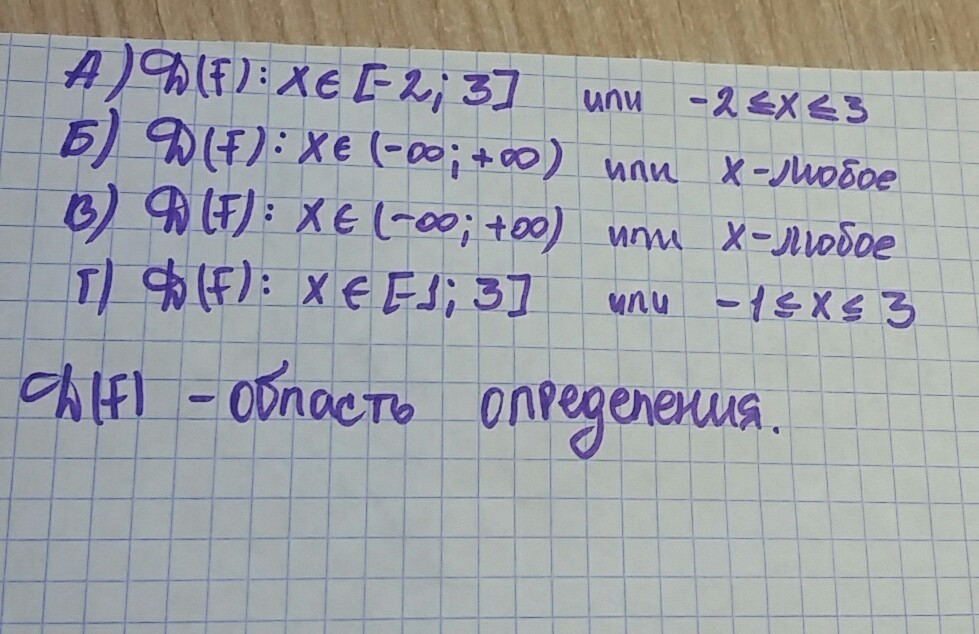 А) D(F): x ∈ [-2; 3] или -2 ≤ x ≤ 3
Б) D(F): x ∈ (-∞; +∞) или x - любое
В) D(F): x ∈ (-∞; +∞) или x - любое
Г) D(F): x ∈ [-1; 3] или -1 ≤ x ≤ 3
D(F) - область определения.